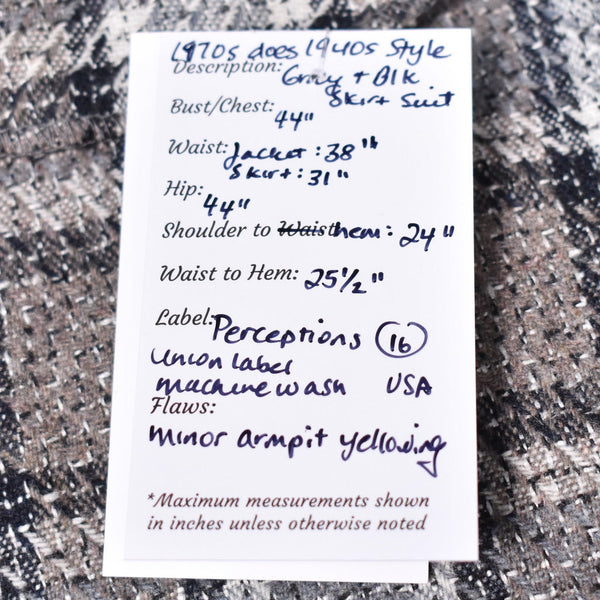 1970s does 1940s Style
Description: Gray + Blk
Skirt Suit
Bust/Chest: 44"
Waist: Jacket: 38"
Skirt: 31"
Hip: 44"
Shoulder to Waist hem: 24"
Waist to Hem: 25 1/2"
Label: Perceptions 16
Union label
machine wash USA
Flaws:
minor armpit yellowing
*Maximum measurements shown
in inches unless otherwise noted